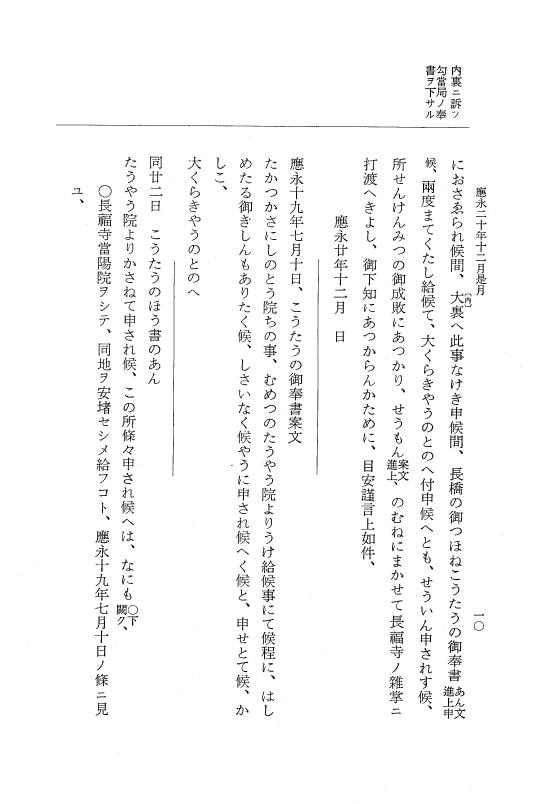 應永二十年十二月是月
一〇
内裏ニ訴フ
勾當局ノ奉
書ヲ下サル
におさゑられ候間、大裏〔内〕へ此事なけき申候間、長橋の御つほねこうたうの御奉書あん文進上申
候、兩度まてくたし給候て、大くらきやうのとのへ付申候へとも、せういん申されす候、
所せんけんみつの御成敗にあつかり、せうもん案文進上、のむねにまかせて長福寺ノ雜掌ニ
打渡へきよし、御下知にあつからんかために、目安謹言上如件、
應永廿年十二月　日
應永十九年七月十日、こうたうの御奉書案文
たかつかさにしのとう院ちの事、むめつのたうやう院よりうけ給候事にて候程に、はし
めたる御きしんもありたく候、しさいなく候やうに申され候へく候と、申せとて候、か
しこ、
大くらきやうのとのへ
同廿二日　こうたうのほう書のあん
たうやう院よりかさねて申され候、この所條々申され候へは、なにも〇下闕ク、
〇長福寺當陽院ヲシテ、同地ヲ安堵セシメ給フコト、應永十九年七月十日ノ條ニ見
ユ、